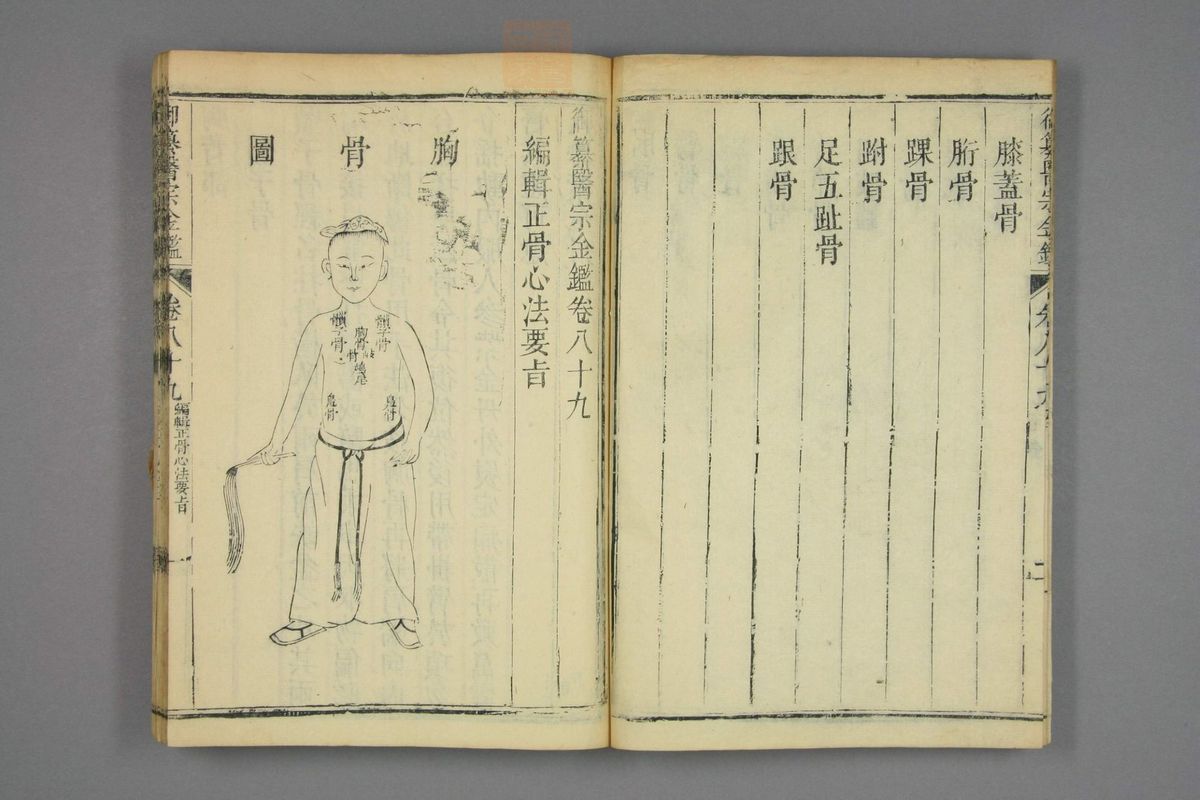 膝蓋骨
胻骨
踝骨
跗骨
足五趾骨
跟骨
二
御纂醫宗金鑑卷八十九
編輯正骨心法要旨
胸
骨
圖
髃子骨
髃子骨
胸骨
岐骨
鳧骨
鳧骨
御纂醫宗金鑑
卷八十九
編輯正骨心法要旨
一